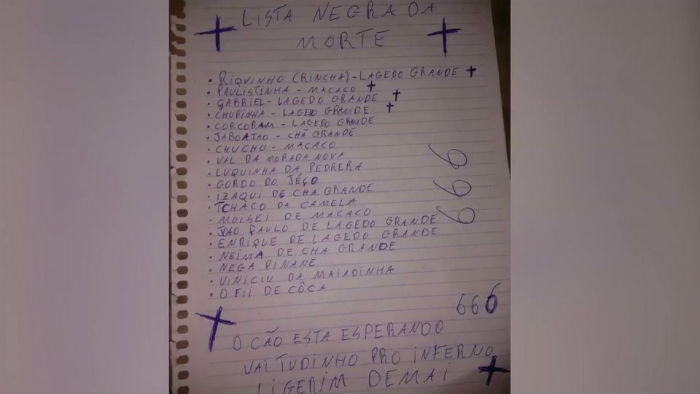 LISTA NEGRA DA
MORTE
• RIQUINHO (RINCHA) - LAGEDO GRANDE
• PAULISTINHA - MACACO
• GABRIEL - LAGEDO GRANDE
• CHUPINHA - LAGEDO GRANDE
• CORCORAM - LAGEDO GRANDE
• JABOATAO - CHÃ GRANDE
• CHUCHO - MACACO
• VAL DA MORADA NOVA
• LUQUINHA DA PEDRERA
• GORDO DO JÉGO
• IZAQUI DE CHA GRANDE
• TCHACO DA CAMELA
• MOISEI DE MACACO
• JOAO PAULO DE LAGEDO GRANDE
• ENRIQUE DE LAGEDO GRANDE
• NEIMA DE CHA GRANDE
• NEGA PINANE
• VINICIU DA MAIADINHA
• O FII DE CÔCA
666
666
O CÃO ESTA ESPERANDO
VAI TUDINHO PRO INFERNO
LIGERIM DEMAI